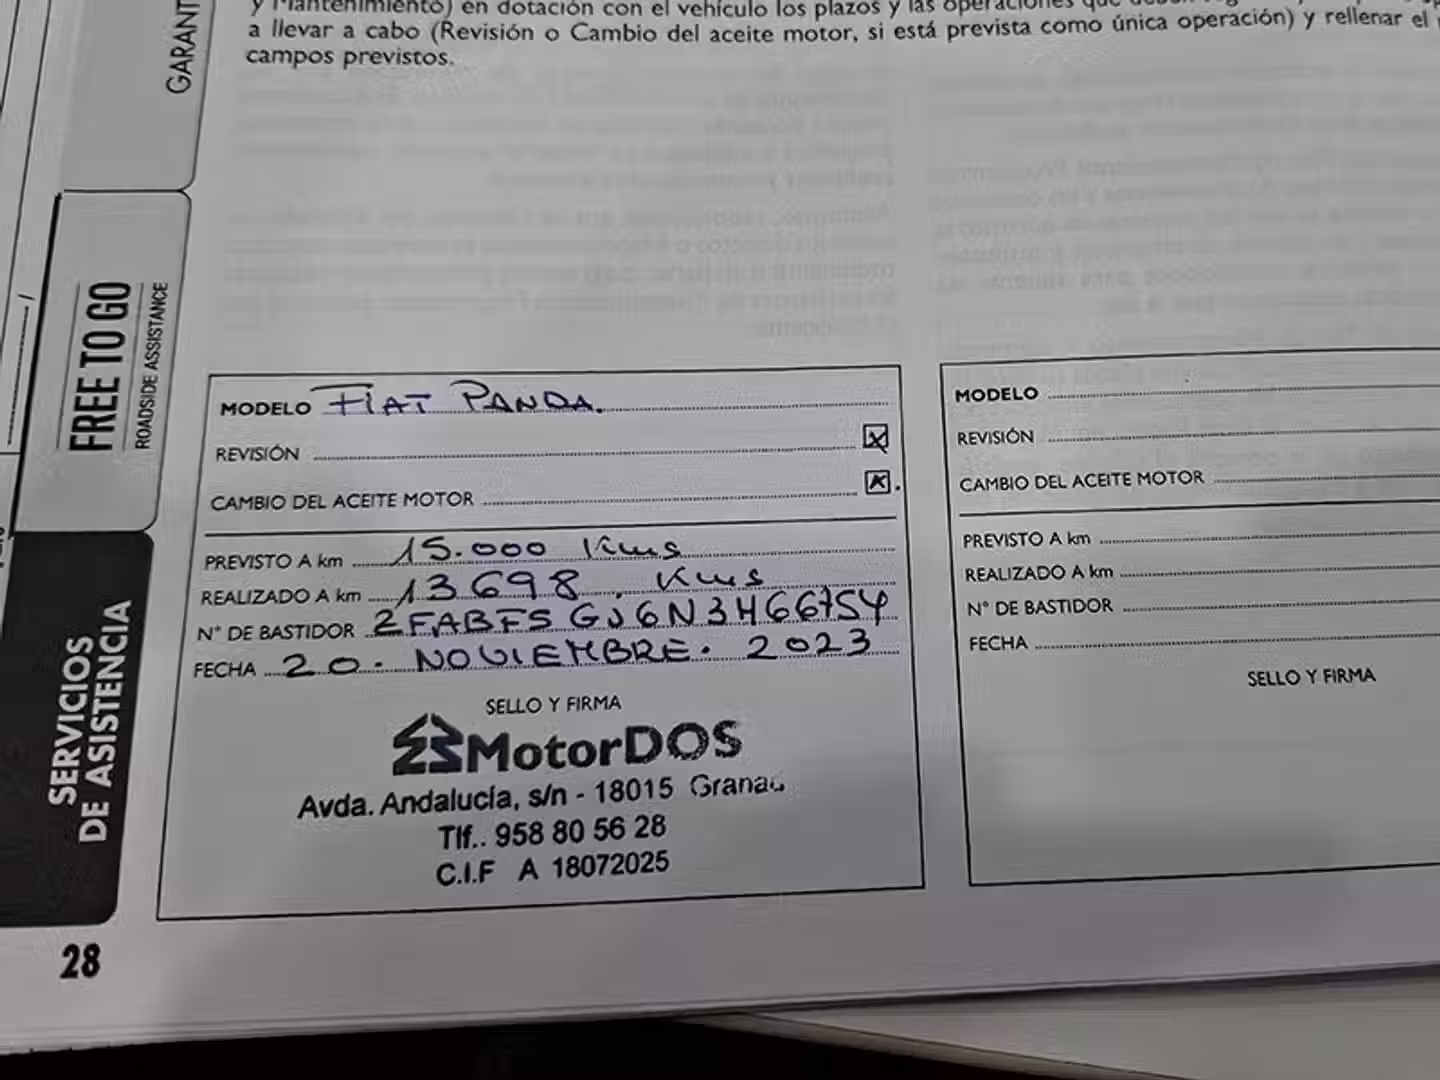 GARANT
y Mantenimiento) en dotación con el vehículo los plazos y las operaciones que
a llevar a cabo (Revisión o Cambio del aceite motor, si está prevista como única operación) y rellenar el
campos previstos.
FREE TO GO
ROADSIDE ASSISTANCE
SERVICIOS
DE ASISTENCIA
MODELO FIAT PANDA.
REVISIÓN X
CAMBIO DEL ACEITE MOTOR X.
PREVISTO A km 15.000 Kms
REALIZADO A km 13698. Kms
N° DE BASTIDOR
FECHA 20. NOVIEMBRE. 2023
SELLO Y FIRMA
MotorDOS
Avda. Andalucía, s/n - 18015 Granad
Tlf.. 958 80 56 28
C.I.F A 18072025
MODELO
REVISIÓN
CAMBIO DEL ACEITE MOTOR
PREVISTO A km
REALIZADO A km
N° DE BASTIDOR
FECHA
SELLO Y FIRMA
28